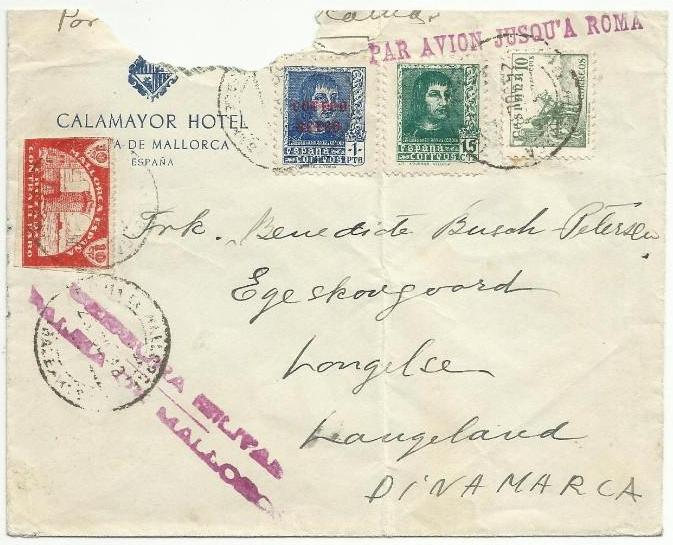 Por
PAR AVION JUSQU'A ROMA
CALAMAYOR HOTEL
A DE MALLORCA
ESPAÑA
CORREO
AEREO
ESPAÑA
CORREOS 1 PTA
ESPAÑA
CORREOS 15 CTS
10
CORREOS
10
MALLORCA
CONTRA EL PARO
10
Frk. Benedicte Busch-Petersen
Egeskovgaard
Longelse
Langeland
DINAMARCA
CENSURA MILITAR
PALMA DE MALLORCA